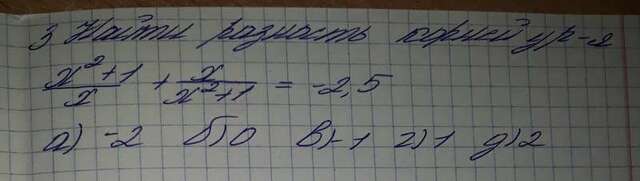 3 Найти разность корней ур-я
x²+1/x + x/x²+1 = -2,5
а) -2 б) 0 в) -1 г) 1 д) 2